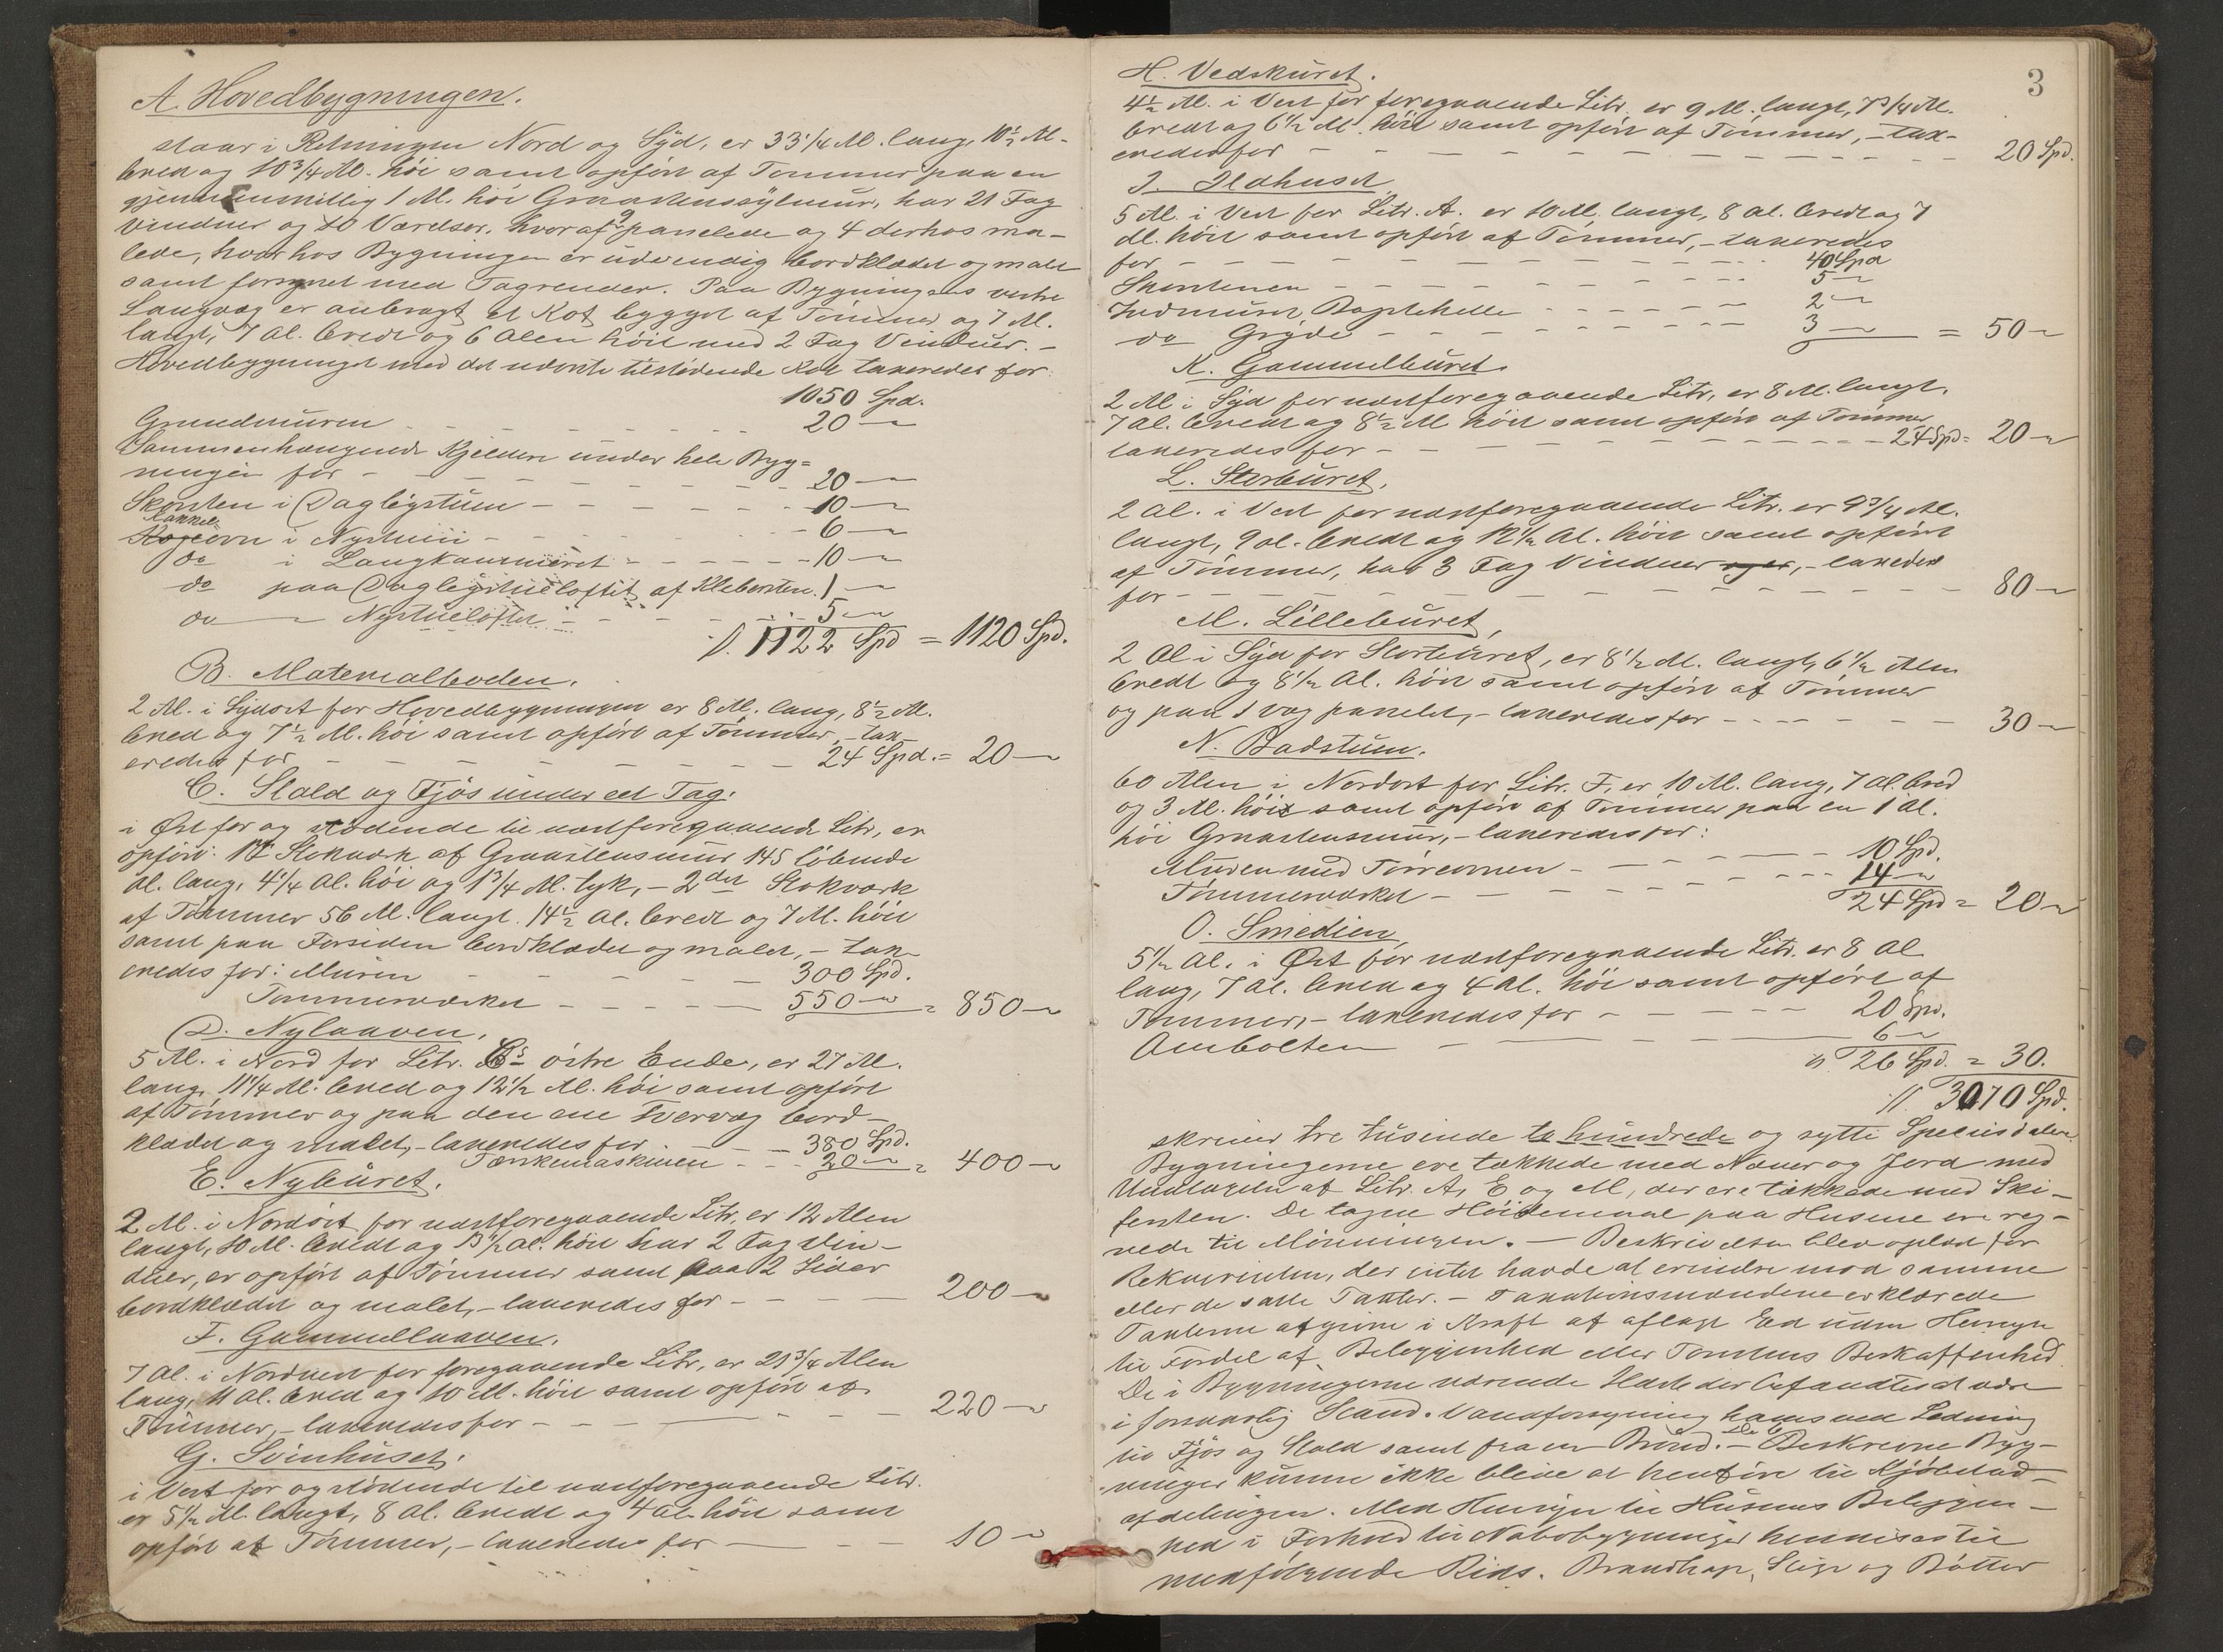 A. Hovedbygningen.
staar i Retningen Nord og Syd, er 33 1/4 Al. lang, 10 1/2 Al.
bred og 10 3/4 Al. høi samt opført af Tømmer paa en
gjennemsnitlig 1 Al. høi Graastenssylmuur, har 21 Fag
Vinduer og 10 Værelser, hvoraf 9 panelede og 4 derhos ma-
lede, hvorhos Bygningen er udvendig bordklædt og malet
samt forsynet med Tagrender. Paa Bygningens vestre
Langvæg er anbragt et Kot bygget af Tømmer og 7 Al.
langt, 7 Al. bredt og 6 Alen høit med 2 Fag Vinduer. -
Hovedbygningen med det udenta tilstødende Kot taxeredes for:
1050 Spd.
Grundmuren - - - 20 "
Sammenhængende Kjeldere under hele Byg=
ningen for - - - 20 "
Skorsten i Dagligstuen - - - 10 "
Kakkel
Kogeovn i Nystuen - - - 6 "
do i Langkammeret - - - 10 "
do paa Dagligstueloftet af Klebersten. 1 "
do " Nystueloftet - - - 5 "
/. 1122 Spd = 1120 Spd.
B. Materialboden.
2 Al. i Sydost for Hovedbygningen er 8 Al. lang, 8 1/2 Al.
bred og 7 1/2 Al. høi samt opført af Tømmer, - tax-
eredes for - - - 24 Spd. = 20 "
C. Stald og Fjøs under eet Tag.
i Øst for og stødende til næstforegaaende Litr, er
opført: 1ste Stokværk af Graastensmuur 145 løbende
Al. lang, 4 1/4 Al. høi og 1 3/4 Al. tyk, - 2det Stokværk
af Tømmer 56 Al. langt 14 1/2 Al. bredt og 7 Al. høit
samt paa Forsiden bordklædt og malet, - tax-
eredes for: Muren - - - 300 Spd.
Tømmerværket - - - 550 " = 850 "
D. Nylaaven.
5 Al. i Nord for Litr. Cs østre Ende, er 27 Al.
lang, 11 1/4 Al. bred og 12 1/2 Al. høi samt opført
af Tømmer og paa den ene Tvervæg bord-
klædt og malet, - taxeredes for - - 380 Spd.
Tærskemaskinen - - 20 " = 400 "
E. Nyburet.
2 Al. i Nordost for næstforegaaende Litr, er 12 Alen
langt, 10 Al. bredt og 13 1/2 Al. høit har 2 Fag Vin-
duer, er opført af Tømmer samt paa 2 Sider
bordklædt og malet, - taxeredes for - - - 200 "
F. Gammellaaven.
7 Al. i Nordvest for foregaaende Litr, er 21 3/4 Alen
lang, 11 Al. bred og 10 Al. høit samt opført af
Tømmer, - taxeredes for - - - 220 "
G. Svinhuset.
i Vest for og stødende til næstforegaaende Litr.
er 5 1/2 Al. langt, 8 Al. bredt og 4 Al. høit samt
opført af Tømmer, - taxeredes for - - 10 "
3
H. Vedskuret.
4 1/2 Al. i Vest for foregaaende Litr. er 9 Al. langt, 7 3/4 Al.
bredt og 6 1/2 Al. høit samt opført af Tømmer, - tax-
eredes for - - - 20 Spd.
J. Ildhuset
5 Al. i Vest for Litr. A. er 10 Al. langt, 8 Al. bredt og 7
Al. høit samt opført af Tømmer, - taxeredes
for - - - 40 Spd
Skorstenen - - - 5 "
Indmuret Bagstehelle - - - 2 "
do Gryde - - - 3 " = 50 "
K. Gammelburet.
2 Al. i Syd for næstforegaaende Litr, er 8 Al. langt,
7 Al. bredt og 8 1/2 Al. høit samt opført af Tømmer
taxeredes for - - - 24 Spd = 20 "
L. Storburet.
2 Al. i Vest for næstforegaaende Litr. er 9 3/4 Al.
langt, 9 Al. bredt og 12 1/2 Al. høit samt opført
af Tømmer, har 3 Fag Vinduer og er, - taxeredes
for - - - 80 "
M. Lilleburet,
2 Al i Syd for Storburet, er 8 1/2 Al. langt, 6 1/2 Alen
bredt og 8 1/2 Al. høit samt opført af Tømmer
og paa 1 Væg panelet, - taxeredes for - - - 30 "
N. Badstuen.
60 Alen i Nordost for Litr. F, er 10 Al. lang, 7 Al. bred
og 3 Al. høi samt opført af Tømmer paa en 1 Al.
høi Graastensmuur, - taxeredes for:
Muren med Tørreovnen - - - 10 Spd.
Tømmerværket - - - 14 "
24 Spd = 20 "
O. Smedien,
5 1/2 Al. i Øst for næstforegaaende Litr. er 8 Al
lang, 7 Al. bred og 4 Al. høi samt opført af
Tømmer, - taxeredes for - - - 20 Spd.
Ambolten - - - 6 "
/. 26 Spd. = 30.
/. 3070 Spd.
skriver tre tusinde to hundrede og sytti Speciesdaler.
Bygningerne ere tækkede med Næver og Jord med
Undtagelse af Litr. A, E og M, der ere tækkede med Ski-
fersten. De tagne Høidemaal paa Husene ere reg-
nede til Mønningen. - Beskrivelsen blev oplæst for
Rekvirenten, der intet havde at erindre mod samme
eller de satte Taxter. - Taxationsmændene erklærede
Taxterne afgivne i Kraft af aflagt Ed uden Hensyn
til Fordel af Beliggenhed eller Tomtens Beskaffenhed.
De i Bygningerne værende Ildsteder befandtes at være
i forsvarlig Stand. Vandforsyning haves ved Ledning
til Fjøs og Stald samt fra en Brønd. - De Beskrevne Byg-
ninger kunne ikke blive at henføre til Kjøbstad-
afdelingen. Med Hensyn til Husenes Beliggen-
hed i Forhold til Nabobygninger henvises til
medfølgende Rids. Brandhage, Stige og Bøtter